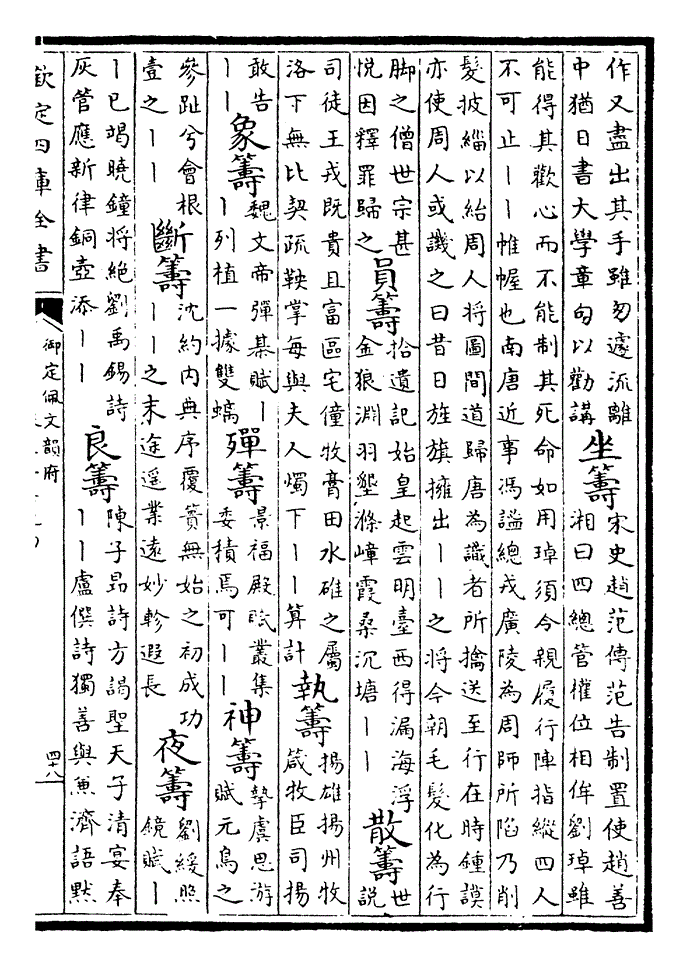 作又盡出其手雖匆遽流離
中猶日書大學章句以勸講
坐籌
宋史趙范傳范告制置使趙善
湘曰四總管權位相侔劉琸雖
能得其歡心而不能制其死命如用琸須令親履行陣指縱四人
不可止丨丨帷幄也南唐近事馮謐總戎廣陵為周師所陷乃削
髮披緇以紿周人將圖間道歸唐為識者所擒送至行在時鍾謨
亦使周人或譏之曰昔日旌旗擁出丨丨之將今朝毛髮化為行
脚之僧世宗甚
悦因釋罪歸之
員籌
拾遺記始皇起雲明臺西得漏海浮
金狼淵羽墾滌嶂霞桑沉塘丨丨
散籌
世
說
司徒王戎既貴且富區宅僮牧膏田水碓之屬
洛下無比契疏鞅掌每與夫人燭下丨丨算計
執籌
揚雄揚州牧
箴牧臣司揚
敢告
丨丨
象籌
魏文帝彈棊賦丨
丨列植一據雙螭
殫籌
景福殿賦叢集
委積焉可丨丨
神籌
摯虞思游
賦元烏之
參趾兮會根
壹之丨丨
斷籌
沈約内典序覆簣無始之初成功
丨丨之末途遥業遠妙軫遐長
夜籌
劉緩照
鏡賦丨
丨已竭曉鐘將絶劉禹錫詩
灰管應新律銅壺添丨丨
良籌
陳子昂詩方謁聖天子清宴奉
丨丨盧僎詩獨善與兼濟語默
欽定四庫全書
御定佩文韻府
四十八